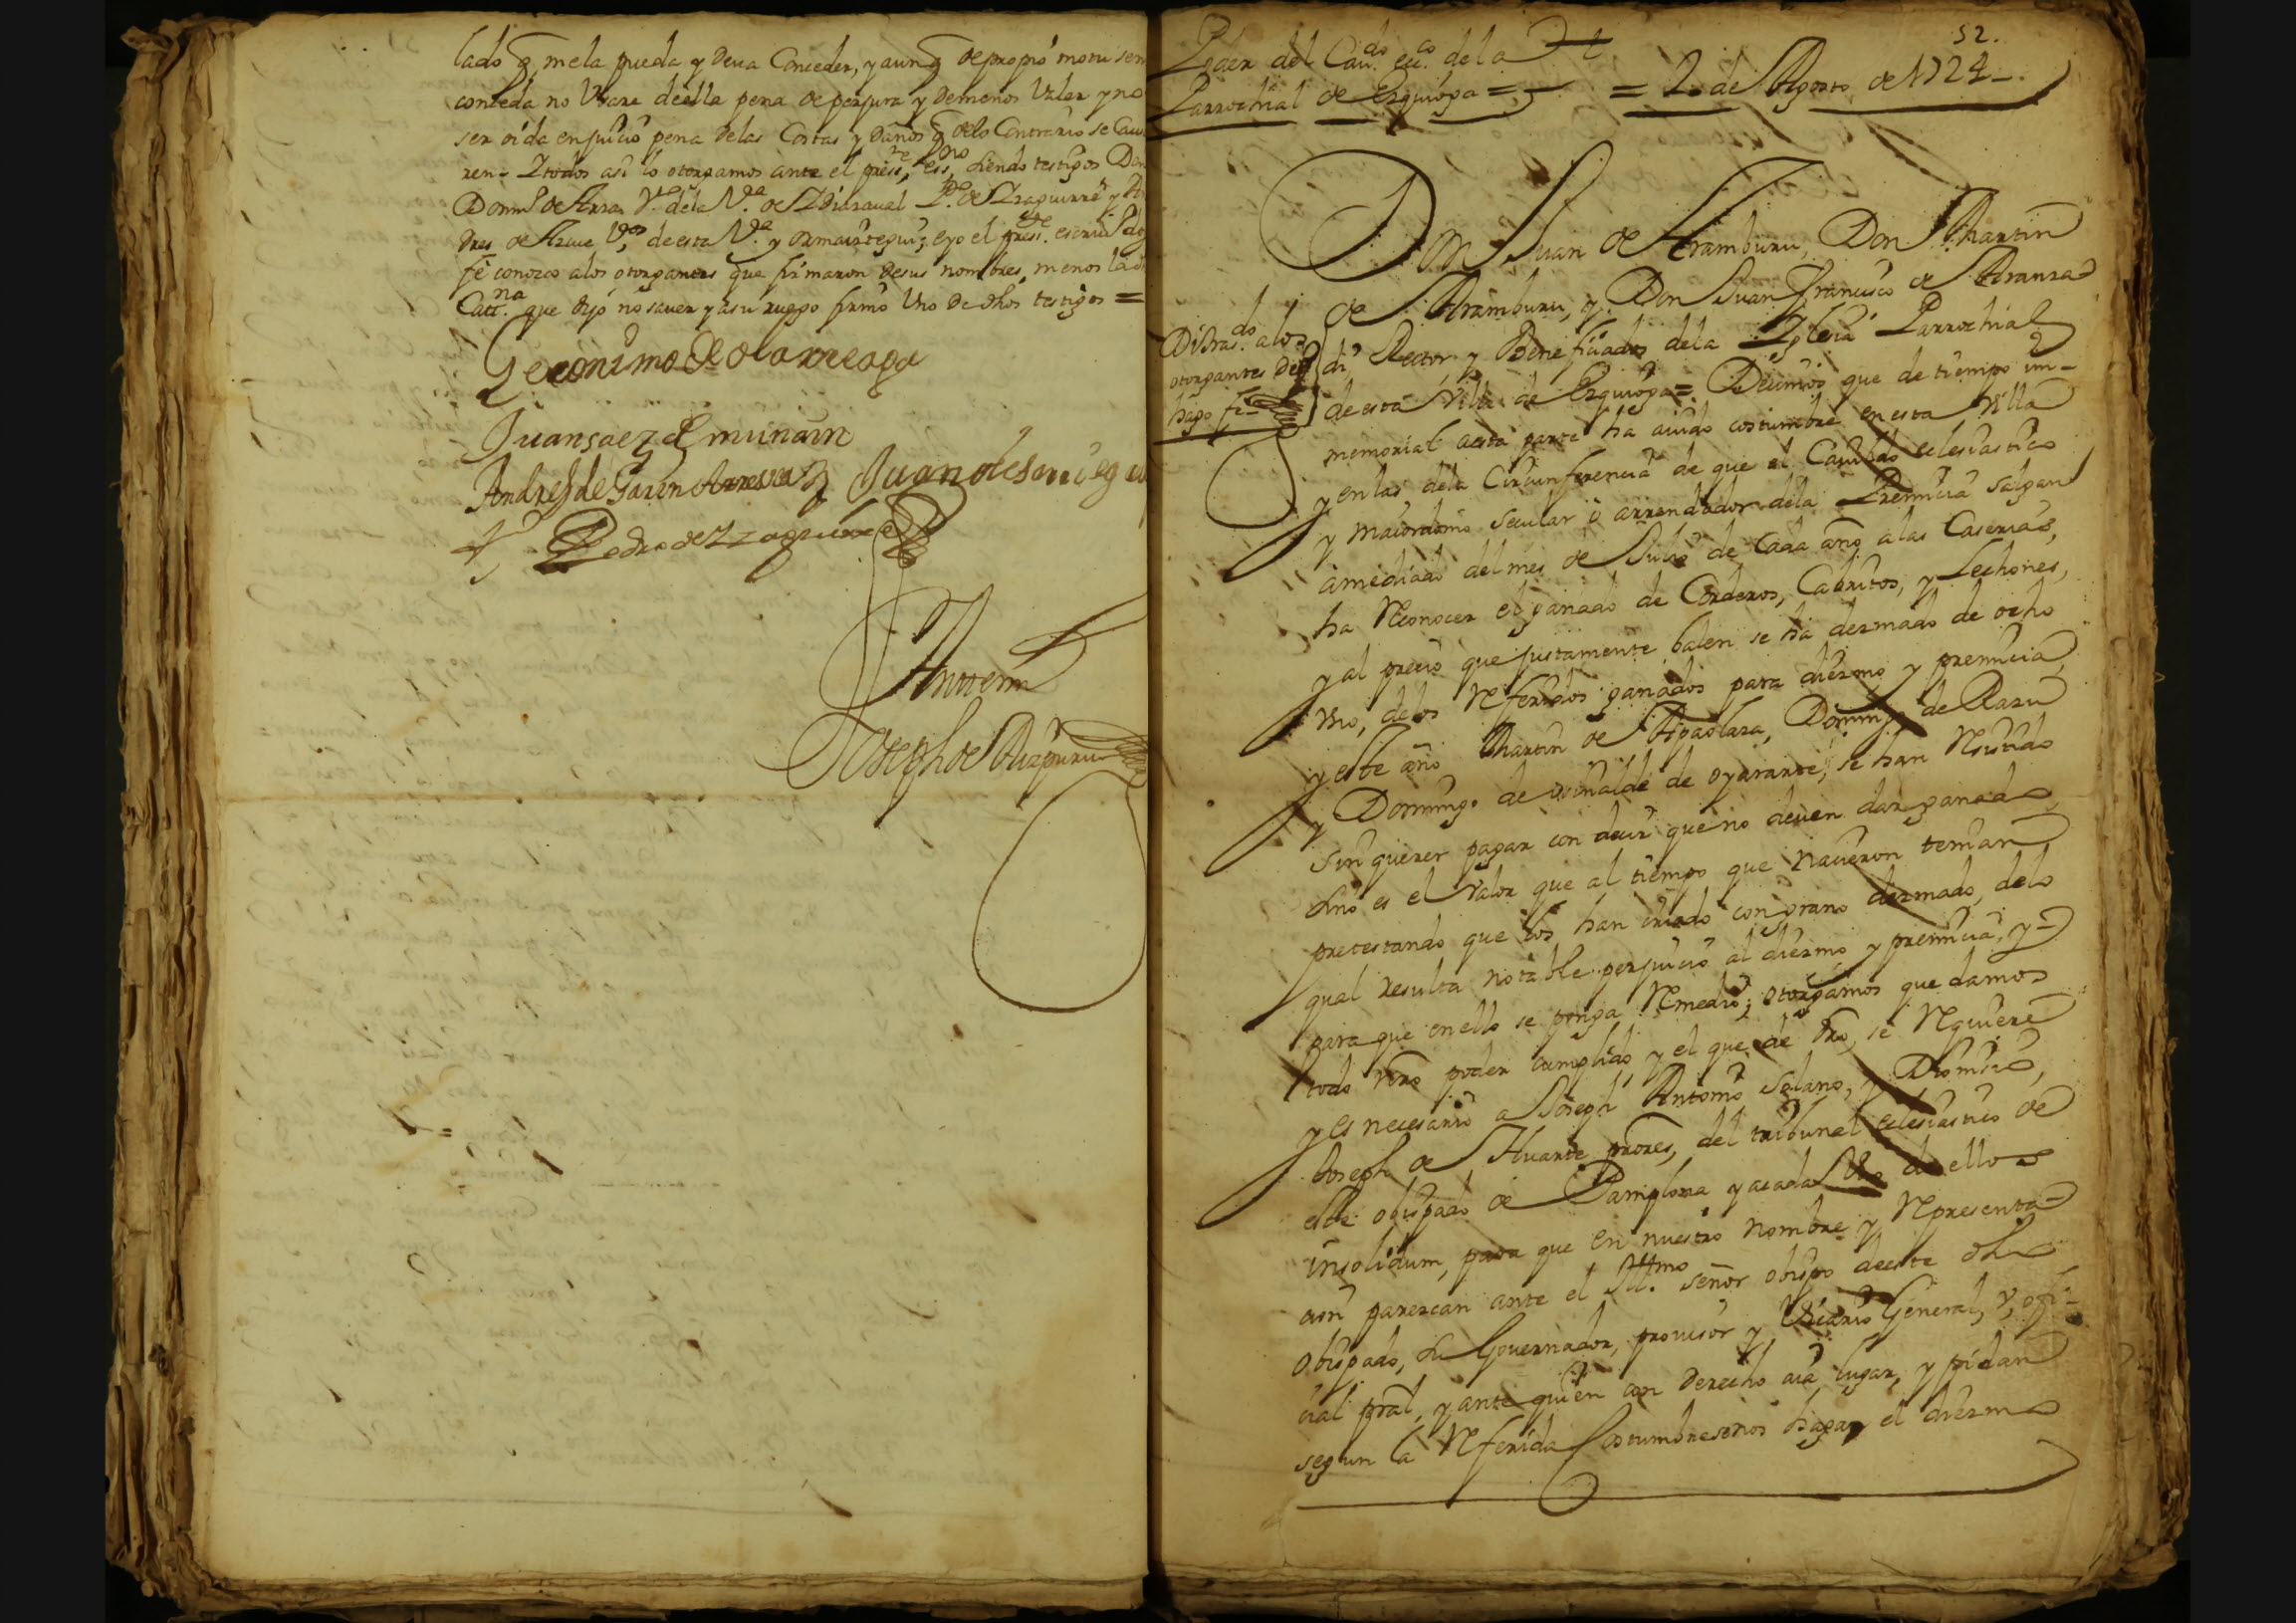 lado q̃ mela pueda y deua Conceder, y aunq̃ de propio motu sem
conceda no Usare deella pena de perjura y demenos Valer y no
ser oida en juicio pena delas Costas y daños q̃ delo Contrario se Cau
ren = I todos asi lo otorgamos ante el press.te ess.no siendo testigos Don
Dom.o de V.o dela V.a de P.o de Izaguirre y An
dres de V.os de esta V.a y Ormaiztegui; e yo el press.te escriu.o doy
fe conozco alos otorgantes que firmaron de sus nombres, menos la d
Catt.na que dijo no sauer y a su ruego firmo Uno de dhos testigos =
Geronimo de olarreaga
Juan saez de munain
Andres de Garin Juan de
Pedro de Izaguirre
Antemi
Joseph de Aizpuru
52.
Poder del Cau.do ecc.o dela
Parrochial de Ezquioga = = 2. de Agosto de 1724 -.
Don Juan de Aramburu, Don Martin
de Aramburu, y Don Juan Francisco de Aranza
di, Rector y Beneficiados dela Iglesia Parrochial
de esta Villa de Ezquioga = Decimos que de tiempo im-
memorial aesta parte ha auido costumbre en esta Villa
y en las dela Circunferencia de que el Cauildo eclesiastico
y maiordomo secular o arrendador dela Premicia salgan
amediado del mes de Julio de cada año a las Caserias,
ha Reconocer el ganado de Corderos, Cabritos, y Lechones,
y al precio que justamente balen se ha dezmado de ocho
vno, delos Referidos ganados para diezmo y premicia,
y este año Martin de Apaolaza, Domingo de
y Domingo de de oyarzabal, se han Resistido
sin querer pagar con decir que no deuen dar ganado,
sino es el Valor que al tiempo que nacieron tenian
pretestando que los han criado con grano dezmado, delo
qual resulta notable perjuicio al diezmo y premicia, y
para que en ello se ponga Remedio; otorgamos que damos
todo nro poder cumplido, y el que de dro, se Requiere
y es necesario a Joseph Antonio Solano, y
Joseph de Huarte prores, del tribunal eclesiastico de
este obispado de Pamplona y acada Uno de ellos
insolidum, para que en nuestro nombre y Representa
cion parezcan ante el Ill.mo señor obispo de este dho
Obispado, su Gouernador, prouisor y Vicario General, y ofi-
cial pral, y ante quien con derecho aia lugar, y pidan
segun la Referida Costumbre senos hagan el diezmo
Diósras.do alos
otorgantes de q̃
hago fe